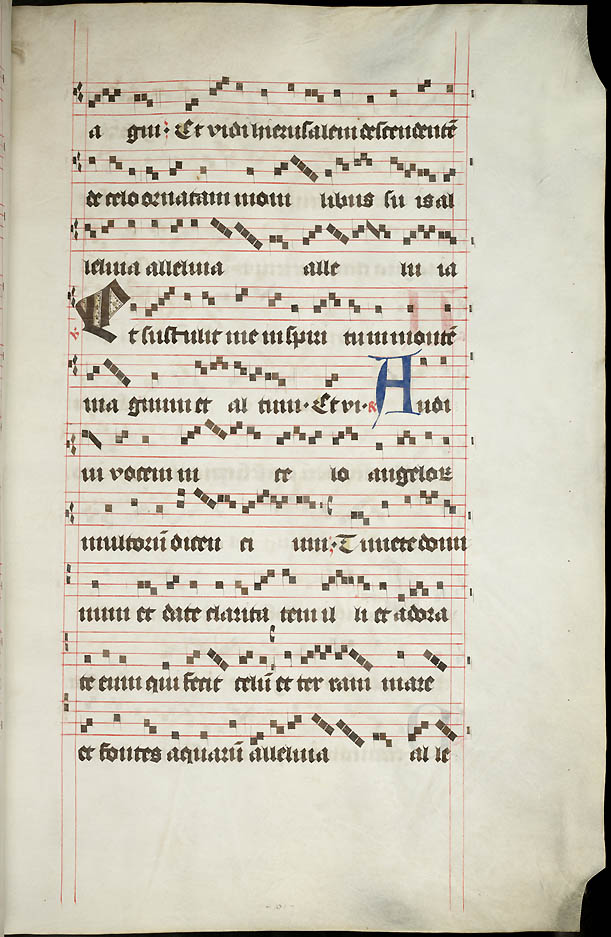 a gni · Et vidi hierusalem descendentē
de celo ornatam moni libus su is al
leluia alleluia alle lu ia
℣. Et sustulit me in spiri tum montē
ma gnum et al tum · Et vi · ℟ Audi
ui vocem in ce lo angeloꝝ
multorū dicen ci um · Timete domi
num et date clarita tem il li et adora
te eum qui fecit celū et ter ram mare
et fontes aquarū alleluia al le